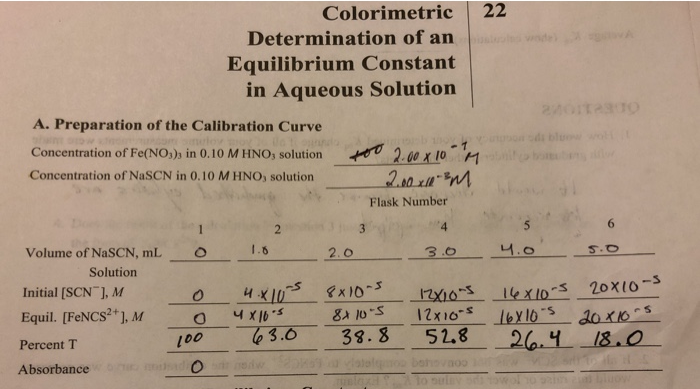 Colorimetric 22
Determination of an
Equilibrium Constant
in Aqueous Solution
A. Preparation of the Calibration Curve
Concentration of Fe(NO₃)₃ in 0.10 M HNO₃ solution 2.00 x 10⁻¹ M
Concentration of NaSCN in 0.10 M HNO₃ solution 2.00 x 10⁻³ M
Flask Number
1 2 3 4 5 6
Volume of NaSCN, mL 0 1.0 2.0 3.0 4.0 5.0
Solution
Initial [SCN⁻], M 0 4 x 10⁻⁵ 8x10⁻⁵ 12x10⁻⁵ 16 x 10⁻⁵ 20x10⁻⁵
Equil. [FeNCS²⁺], M 0 4 x 10⁻⁵ 8x 10⁻⁵ 12x10⁻⁵ 16x10⁻⁵ 20 x 10⁻⁵
Percent T 100 63.0 38.8 52.8 26.4 18.0
Absorbance 0